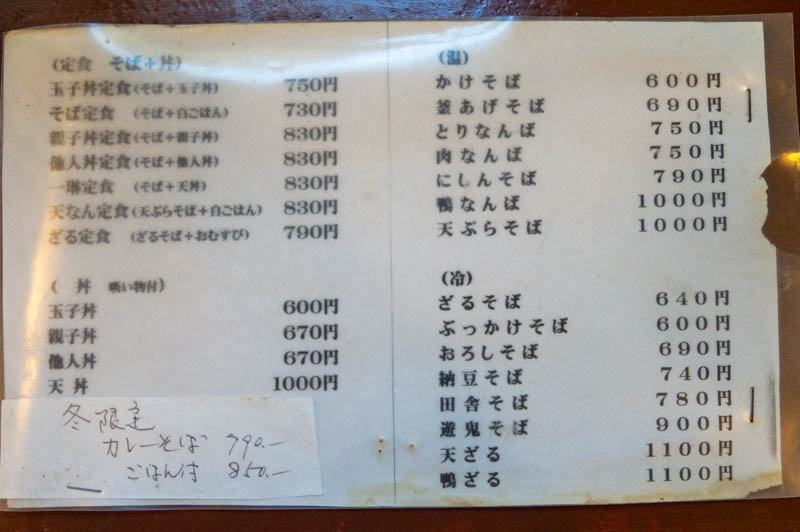 (定食 そば+丼)
玉子丼定食(そば+玉子丼) 750円
そば定食 (そば+白ごはん) 730円
親子丼定食(そば+親子丼) 830円
他人丼定食(そば+他人丼) 830円
一琳定食 (そば+天丼) 830円
天なん定食(天ぷらそば+白ごはん) 830円
ざる定食 (ざるそば+おむすび) 790円
( 丼 吸い物付)
玉子丼 600円
親子丼 670円
他人丼 670円
天丼 1000円
冬限定
カレーそば 790.-
ごはん付 850.-
(温)
かけそば 600円
釜あげそば 690円
とりなんば 750円
肉なんば 750円
にしんそば 790円
鴨なんば 1000円
天ぷらそば 1000円
(冷)
ざるそば 640円
ぶっかけそば 600円
おろしそば 690円
納豆そば 740円
田舎そば 780円
遊鬼そば 900円
天ざる 1100円
鴨ざる 1100円